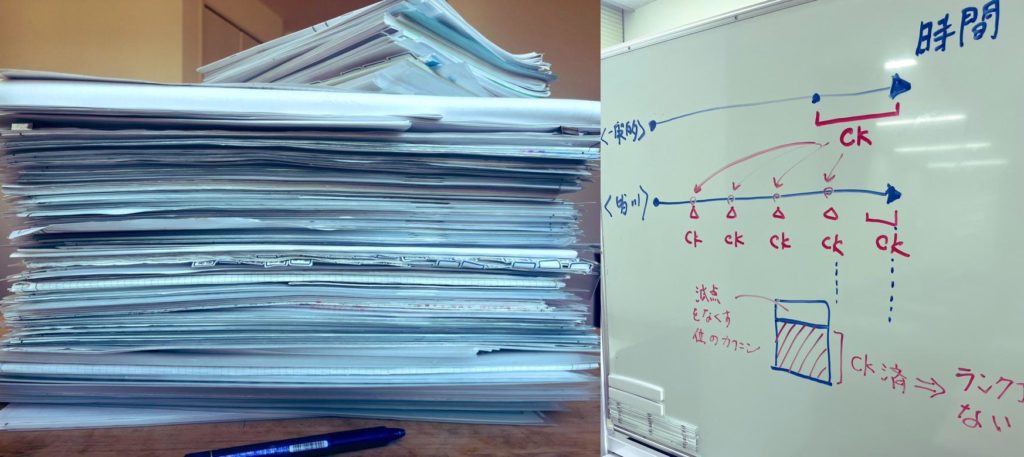 時間
<一般的>
CK
<皆川>
CK CK CK CK CK
減点
をなくす
位のカクニン
CK済⇒ランク下
ない